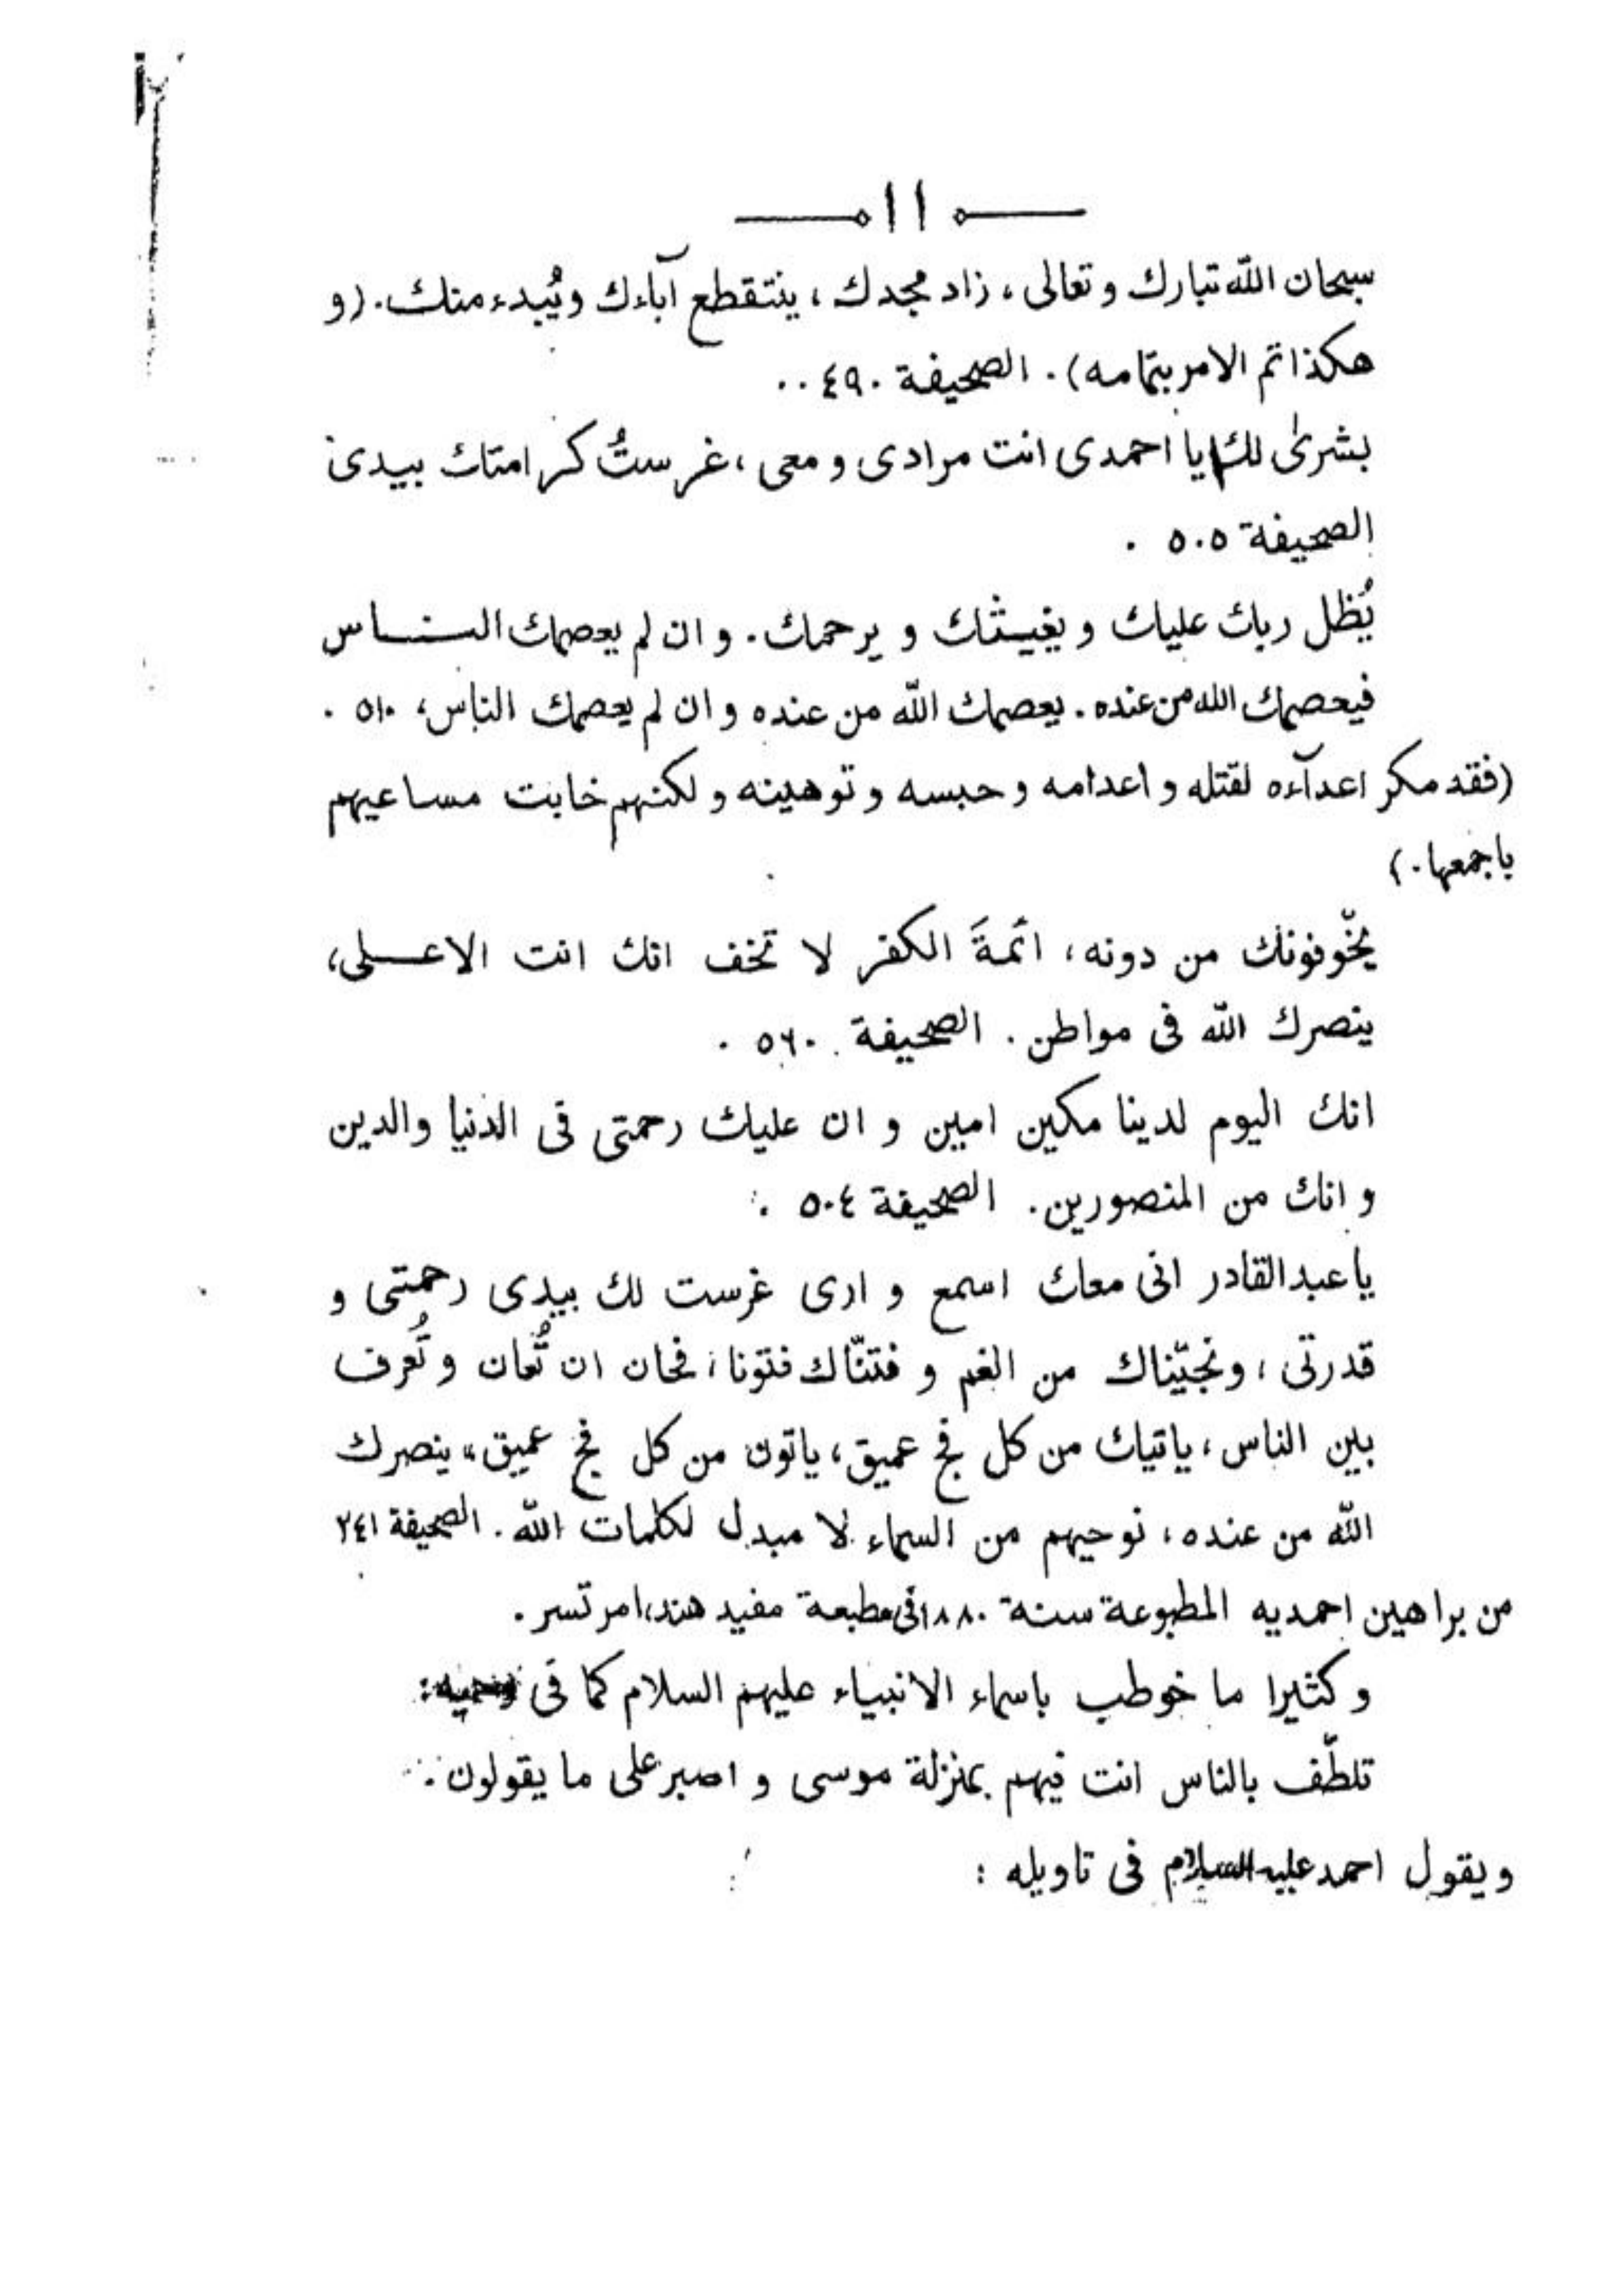 ١١
سبحان الله تبارك و تعالى، زاد مجدك، ينتقطع آباءك ويُبدء منك. (و
هكذا تم الامر بتمامه). الصحيفة ٤٩٠ ..
بشرىٰ لك يا احمدى انت مرادى و معى، غرستُ كرامتك بيدى
الصحيفة ٥٠٥ .
يُظل ربك عليك و يغيثك و يرحمك. و ان لم يعصمك النــاس
فيعصمك الله من عنده. يعصمك الله من عنده و ان لم يعصمك الناس، ٥١٠ .
(فقد مكر اعدآءه لقتله و اعدامه و حبسه و توهينه و لكنهم خابت مساعيهم
باجمعها.)
يخّوفونك من دونه، ائمةَ الكفر لا تخف انك انت الاعــلى،
ينصرك الله فى مواطن. الصحيفة ٥٦٠ .
انك اليوم لدينا مكين امين و ان عليك رحمتى فى الدنيا والدين
و انك من المنصورين. الصحيفة ٥٠٤ .
يا عبدالقادر انى معك اسمع و ارى غرست لك بيدى رحمتى و
قدرتى، ونجيّناك من الغم و فتنّاك فتونا، فحان ان تُعان و تُعرف
بين الناس، ياتيك من كل فج عميق، ياتون من كل فج عميق، ينصرك
الله من عنده، نوحيهم من السماء لا مبدل لكلمات الله. الصحيفة ٢٤١
من براهين احمديه المطبوعة سنة ١٨٨٠ فى مطبعة مفيد هند، امرتسر.
و كثيرا ما خوطب باسماء الانبياء عليهم السلام كما فى
تلطّف بالناس انت فيهم بمنزلة موسى و اصبر على ما يقولون.
ويقول احمد عليه السلام فى تاويله :